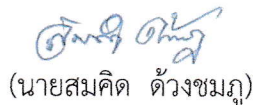 (นายสมคิด ด้วงชมภู)